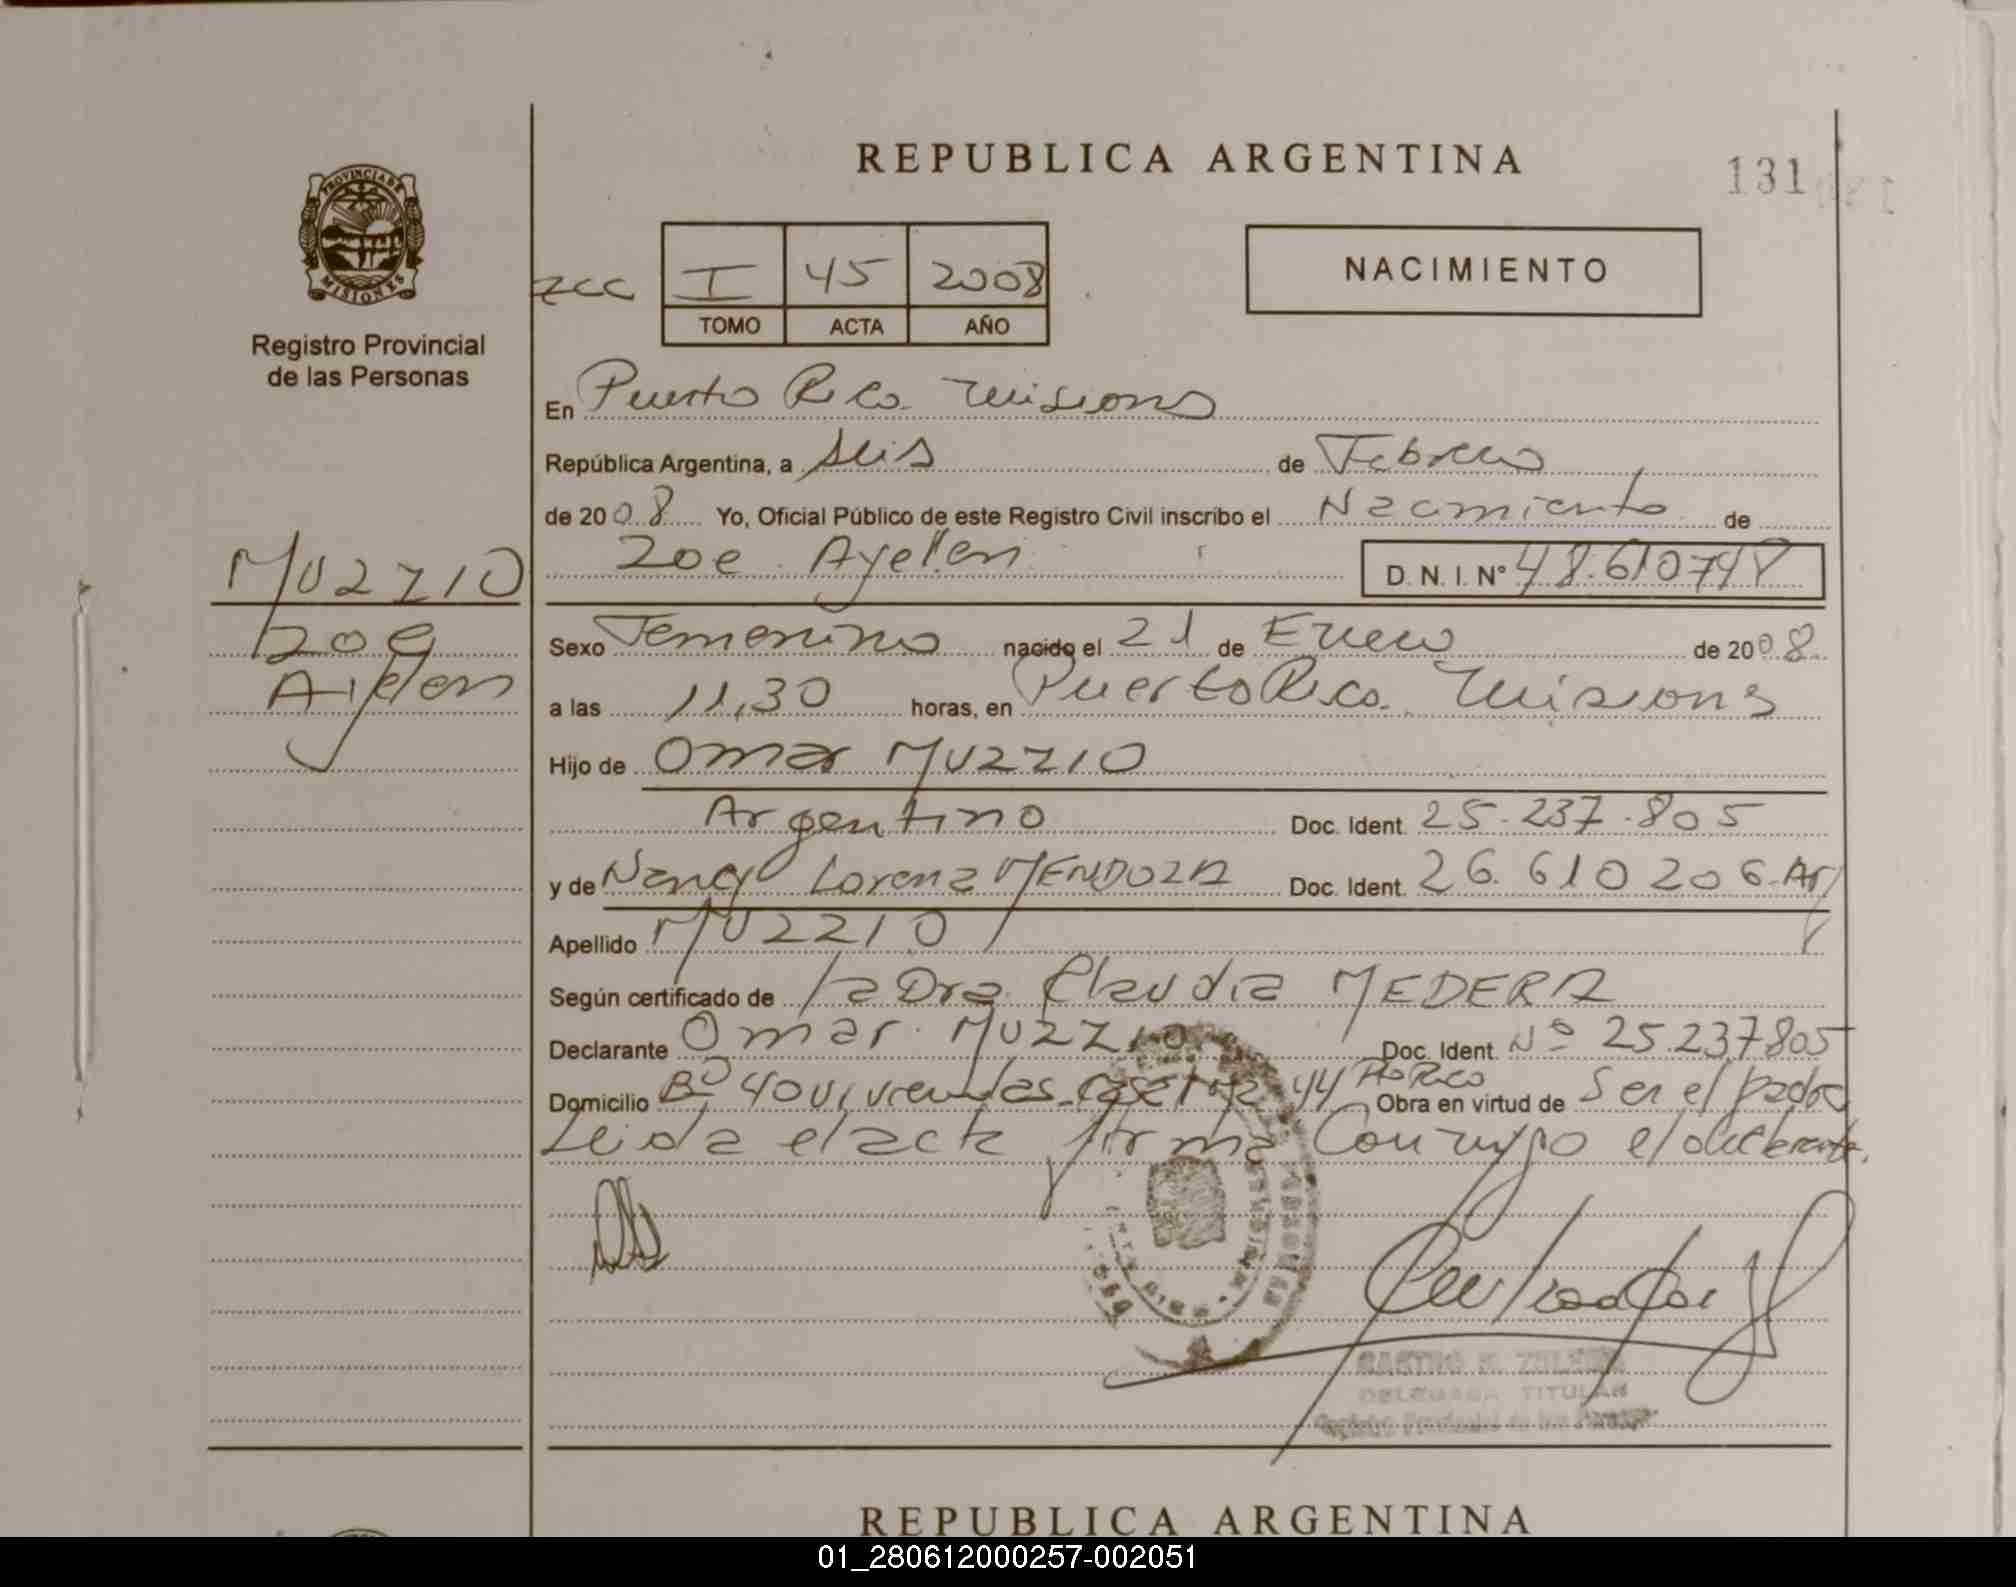 REPUBLICA ARGENTINA
131
PROVINCIA DE
MISIONES
Registro Provincial
de las Personas
zcc I 45 2008
TOMO ACTA AÑO
NACIMIENTO
En Puerto Rico. Misiones
República Argentina, a seis de Febrero
de 2008 Yo, Oficial Público de este Registro Civil inscribo el Nacimiento de
Zoe Ayelen D. N. I. Nº 48.610748
MUZZIO
Zoe
Ayelen
Sexo Femenino nacido el 21 de Enero de 2008
a las 11,30 horas, en Puerto Rico. Misiones
Hijo de Omar MUZZIO
Argentino Doc. Ident. 25.237.805
y de Nancy Lorena MENDOZA Doc. Ident. 26.610206.Ar
Apellido MUZZIO
Según certificado de la Dra. Claudia MEDERA
Declarante Omar MUZZIO Doc. Ident. Nº 25.237805
Domicilio Bº 40 viviendas casa 44 Pto Rico Obra en virtud de Ser el padre
Leida el acta firma Conmigo el declarante.
CASTRO
DELEGADA TITULAR
Registro Provincial de las Personas
REPUBLICA ARGENTINA
01_280612000257-002051